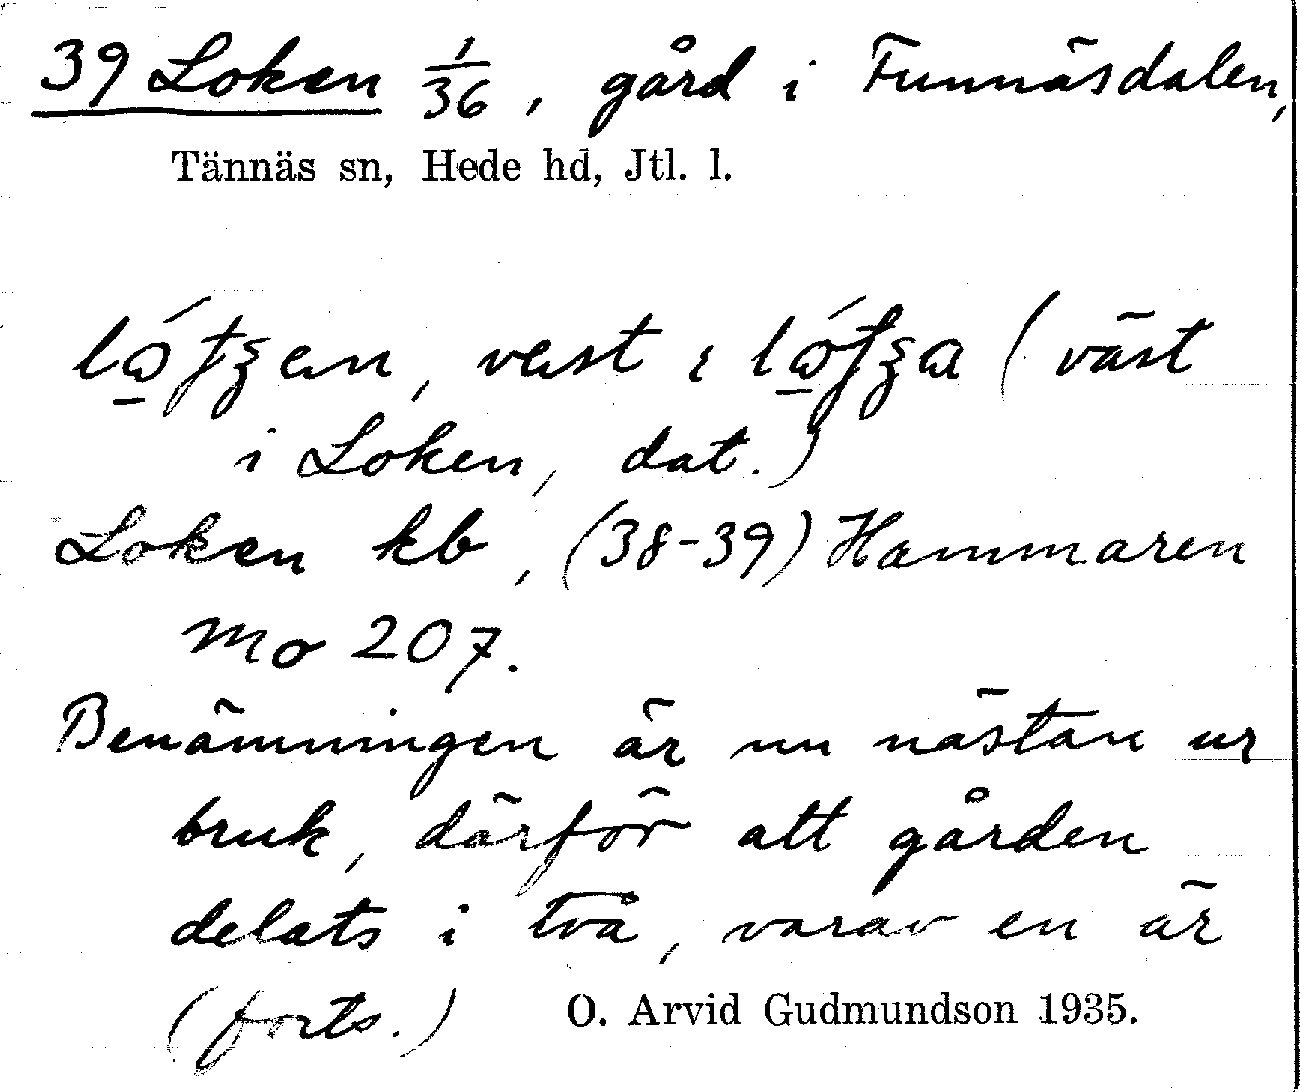 39 Loken 1/36, gård i Funnäsdalen,
Tännäs sn, Hede hd, Jtl. l.
vest i (väst
i Loken, dat.)
Loken kb, (38-39) Hammaren
Mo 207.
Benämningen är nu nästan ur
bruk, därför att gården
delats i två, varav en är
(forts.) O. Arvid Gudmundson 1935.